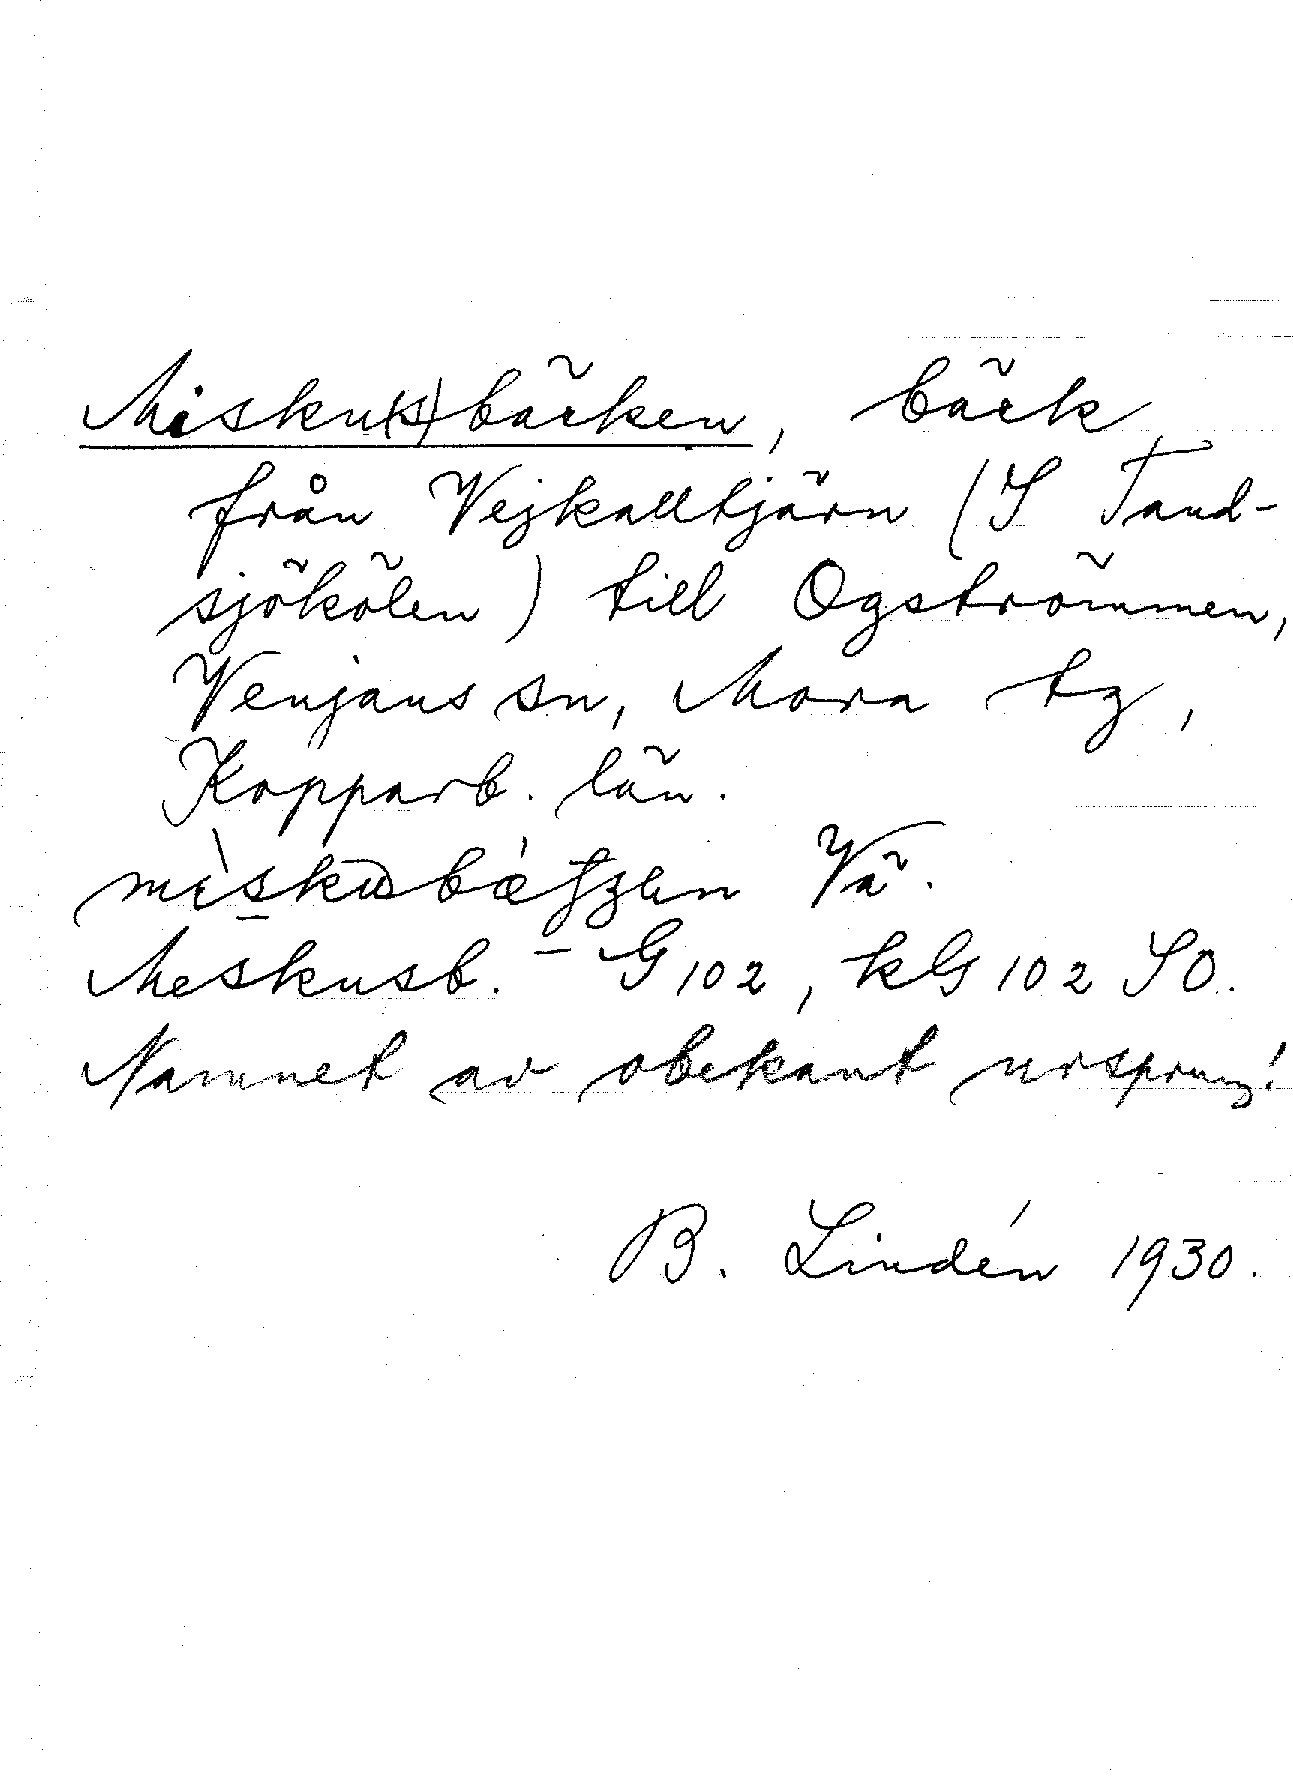 Misku(s)bäcken, bäck
från Vejkalltjärn (S Tand-
sjökölen) till Ogströmmen,
Venjans sn, Mora tg,
Kopparb. län.
Vä.
Meskusb. - G 102, kG 102 SO.
Namnet av obekant ursprung!
B. Lindén 1930.